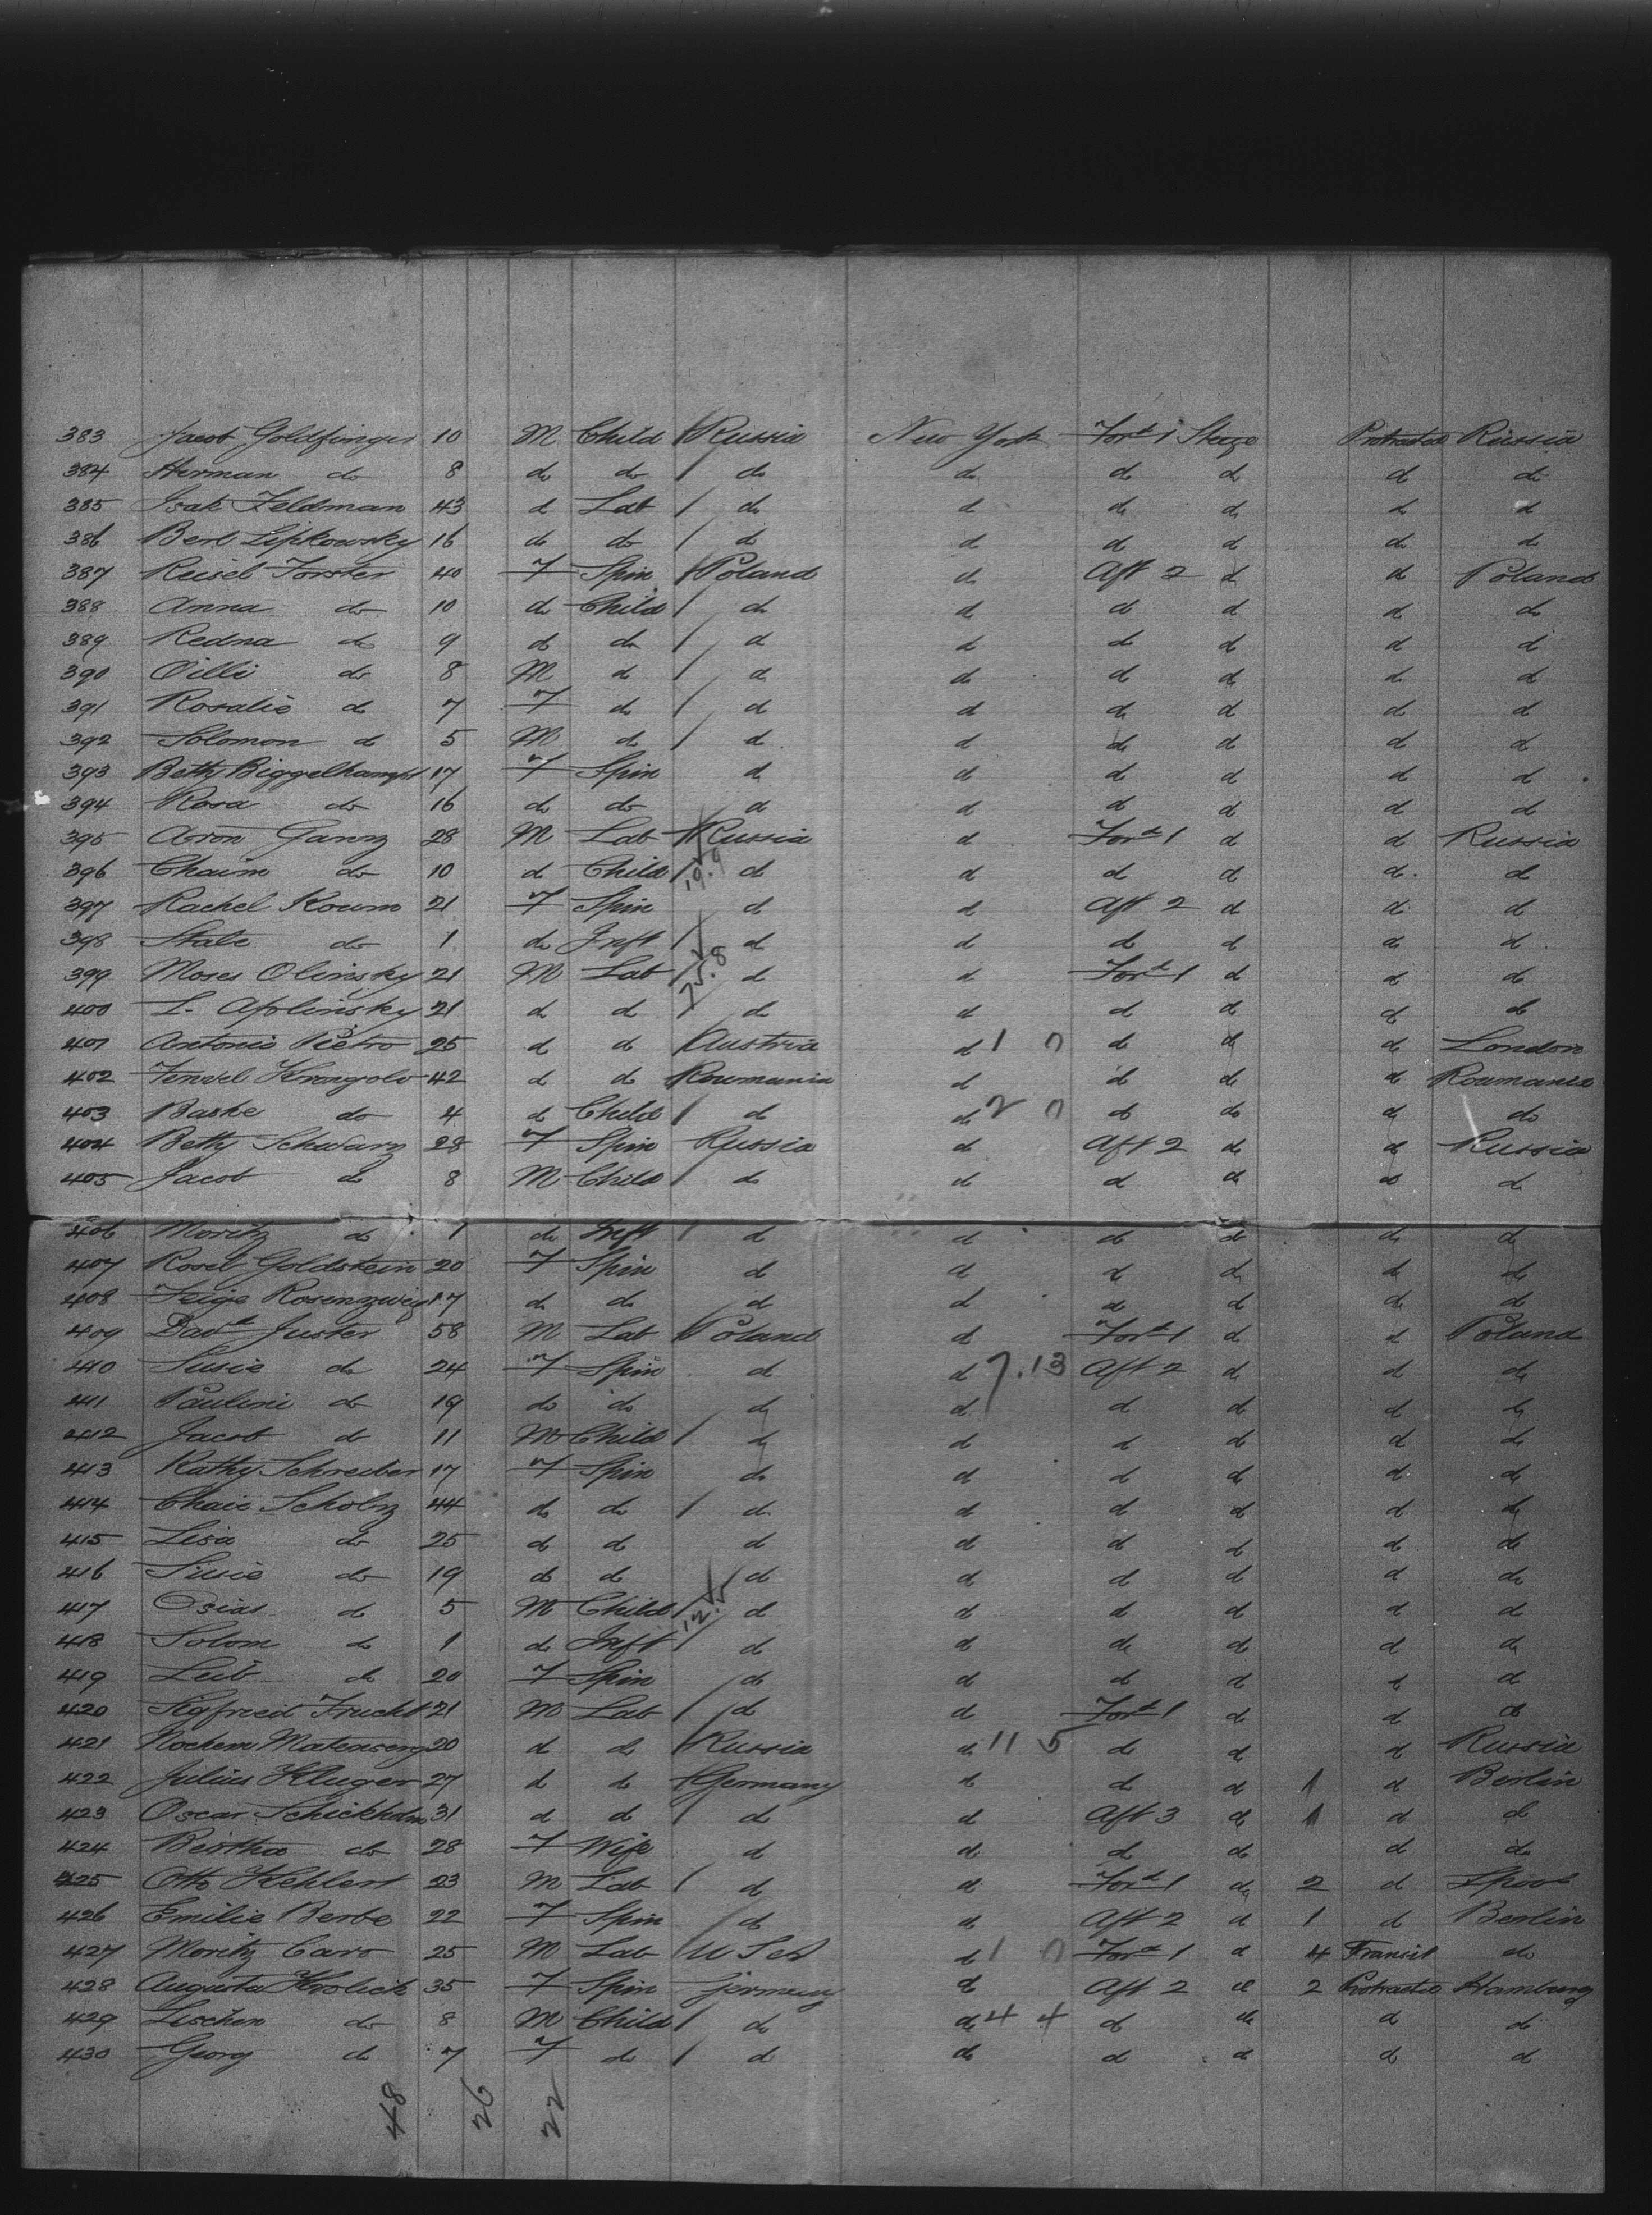 383 Jacob Goldfinger 10 M Child / Russia New York Ford 1 Steege Protracted Russia
384 Herman do 8 do do / do do do do do do
385 Isak Feldman 43 d Lab / do d do do d d
386 Berl Lipkowsky 16 do do / d d d d do d
387 Reisel Forster 40 F Spin / Poland d Aft 2 d d Poland
388 Anna do 10 do Child / do d do d d do
389 Redna do 9 d do / d d do d d d
390 Oilli do 8 M d / d do d d d d
391 Rosalie do 7 F do / d d do d d d
392 Solomon d 5 M d / d d do d d d
393 Betty 17 F Spin d d d d d d
394 Rosa do 16 do do d d d d d d
395 Aron Ganz 28 M Lab / Russia d Ford 1 d d Russia
396 Chaim do 10 d Child / 19.9 d d d d d d
397 Rachel Koum 21 F Spin d d Aft 2 d d d
398 do 1 do Inft / d d d d d d
399 Moses Olinsky 21 M Lab / 75.8 d d Ford 1 d d do
400 L. Aplinsky 21 d d / d d d d d d
401 Antonio Pietro 25 d d / Austria d 1 0 d d d London
402 42 d d Roumania d d d d Roumania
403 Baske do 4 d Child / d d 2 0 d do d do
404 Betty Schwarz 28 F Spin Russia d Aft 2 do d Russia
405 Jacob d 8 M Child / d d d d d d
406 Moritz do 1 do Inft / d d do do do d
407 Rosel Goldstein 20 F Spin d d d d d do
408 Feige Rosenzweig 17 do d d d d d do d
409 Davd Juster 58 M Lab / Poland d Ford 1 d d Poland
410 Susie do 24 F Spin d d 7.13 Aft 2 d d do
411 Paulini do 19 do do d d d d d d
412 Jacob do 11 M Child / d d d d d d
413 Kathy Schreiber 17 F Spin do d d do d d
414 Chaie Scholz 44 do do / d d d d d d
415 Lisa do 25 d d d d d d d do
416 Susie do 19 d d d d d d d do
417 Osias d 5 M Child / 12.5 d d d d d d
418 Solom do 1 d Inft / d d do do d d
419 Leib do 20 F Spin / do d d d d d
420 Sigfried Frucht 21 M Lab / d d Ford 1 d d d
421 Nochem 20 d d / Russia d 11 5 d d d Russia
422 Julius Kluger 27 d d / Germany d d d 1 d Berlin
423 Oscar Schickholm 31 d d / d d Aft 3 d 1 d d
424 Bertha do 28 F Wife d d d do d do
425 Otto Kehlert 23 M Lab / d d Ford 1 do 2 d Lpool
426 Emilie Berbe 22 F Spin / d d Aft 2 d 1 d Berlin
427 Moritz Caro 25 M Lab / d 1 0 Ford 1 d 4 Transit do
428 Augusta Krolick 35 F Spin Germany d Aft 2 d 2 Protracted Hamburg
429 Lischen do 8 M Child / do d 4 4 d do d d
430 Georg do 7 F do / d do d d d d
48 26 22